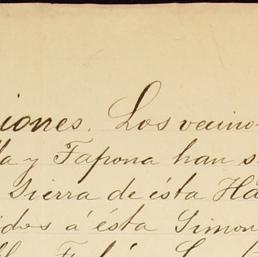 iones. Los vecino
la y Tapona han s
Sierra de ésta Ha
idos á ésta Simon